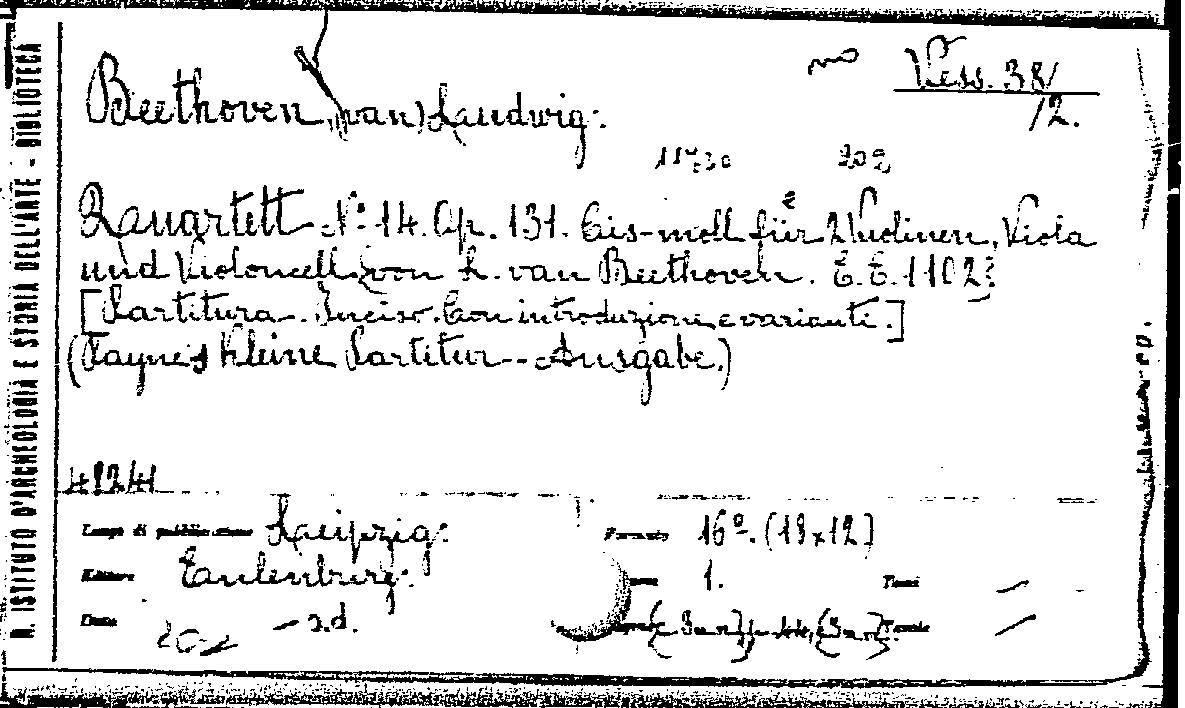 R. ISTITUTO D'ARCHEOLOGIA E STORIA DELL'ARTE - BIBLIOTECA
Vess. 38/
/2.
Beethoven (van) Laudwig:
11730 209
Quartett N.º 14. Op. 131. Cis-moll für 2 Violinen, Viola
und Violoncell, von L. van Beethoven. E. E. 1102
[Partitura. Inciso. Con introduzione e varianti.]
(Payne's kleine Partitur-Ausgabe.)
48241
Luogo di pubblicazione Leipzig:
Editore Eulenburg:
Data s.d.
Formato 16º. (19x12]
1.
Tomi —
Tavole —